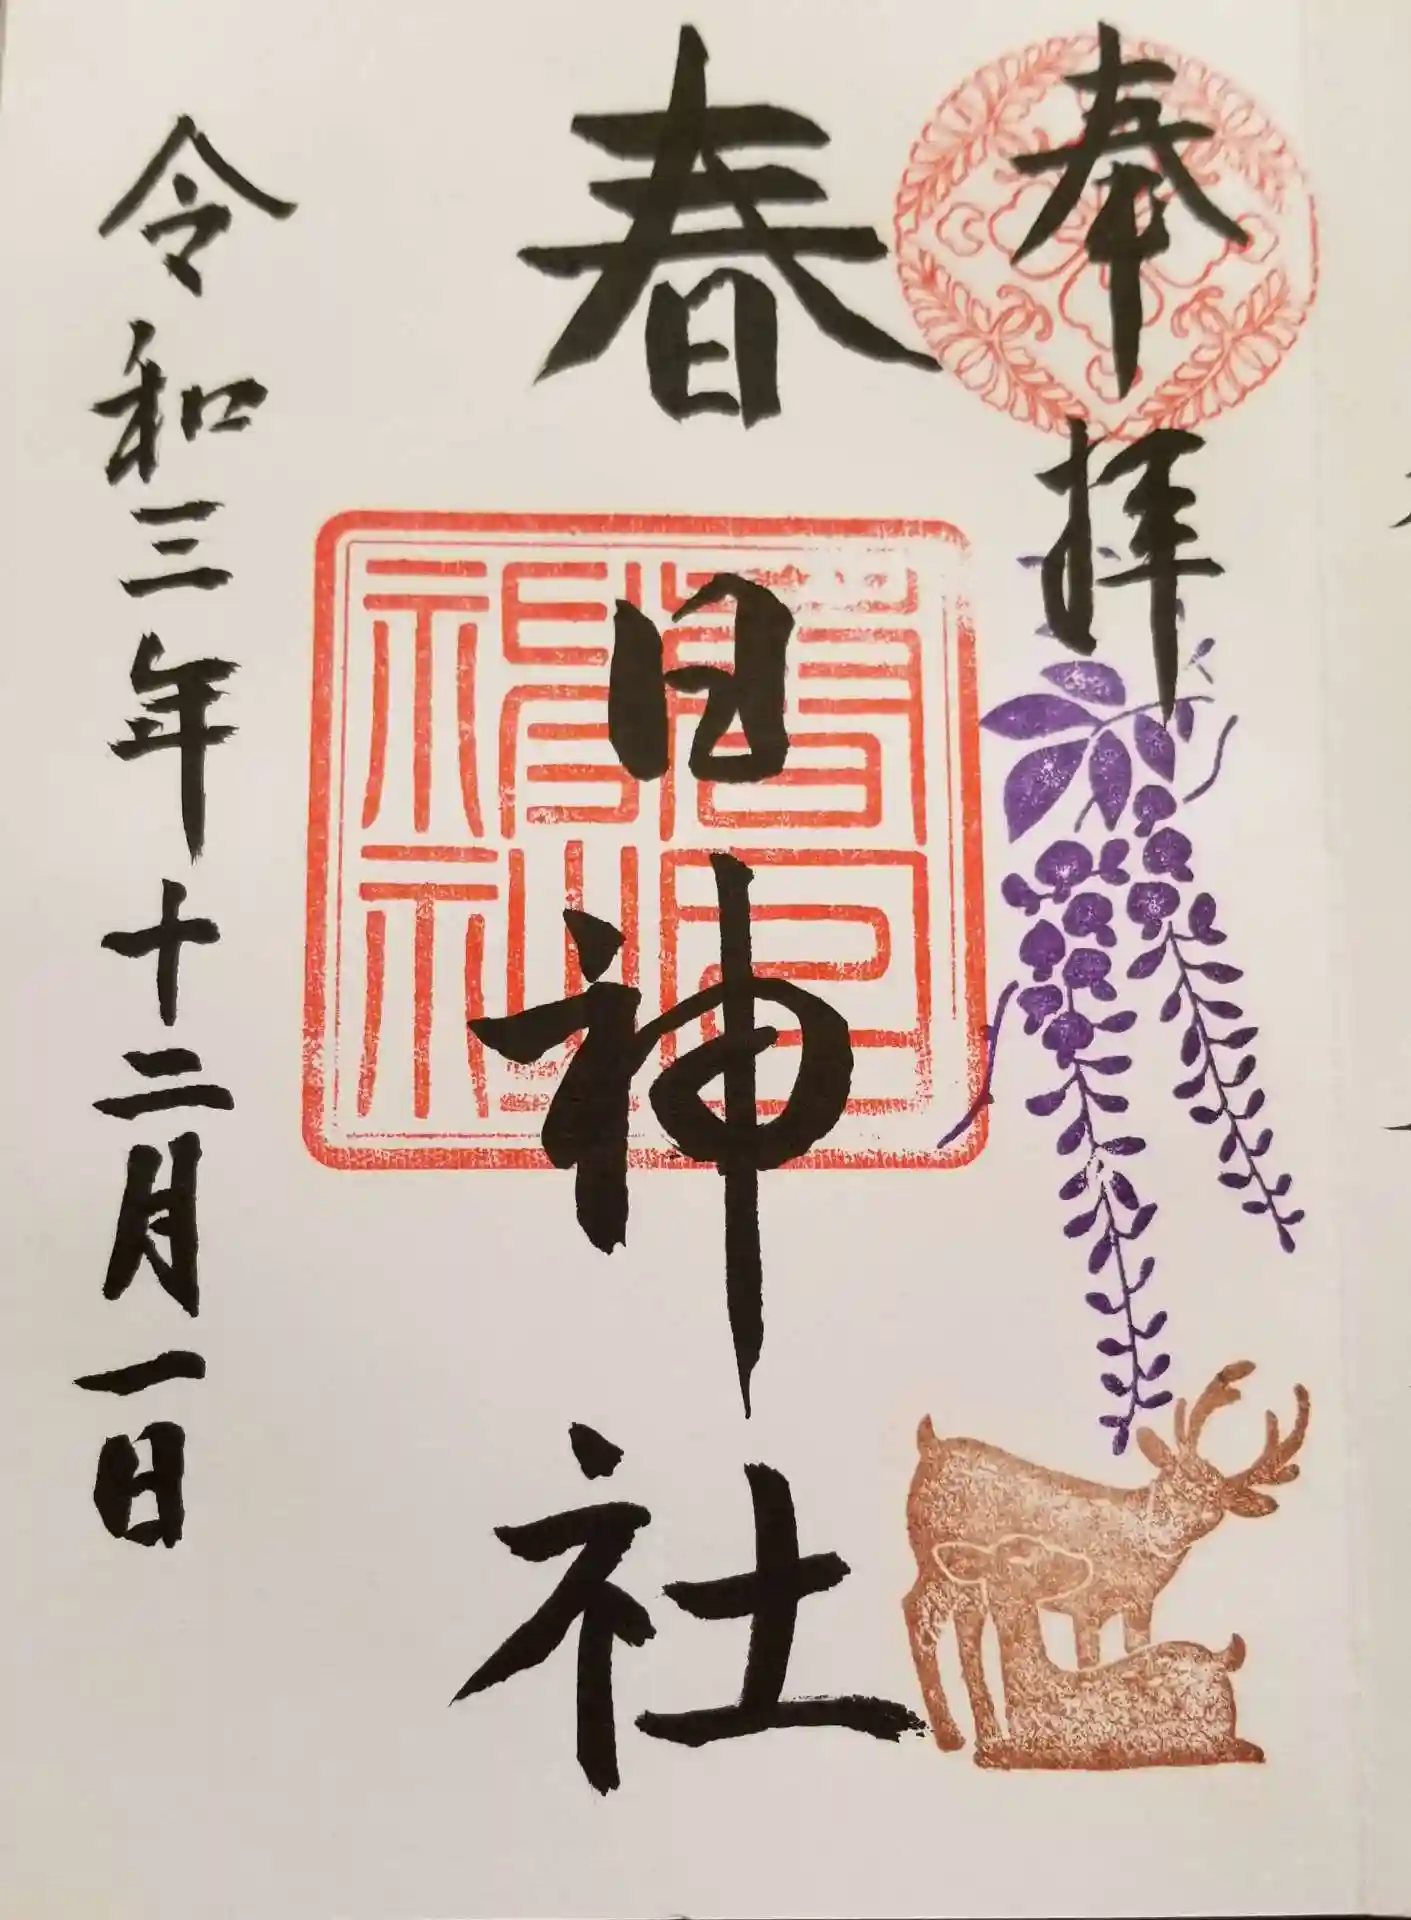 奉拝
春日神社
春日神社
令和三年十二月一日